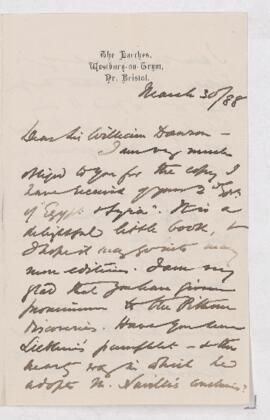 The Larches,
Westbury-on-Trym,
Nr. Bristol.
March 30/88
Dear Sir William Dawson -
I am very much
obliged to you for the copy I
have received of your 2nd Edit.
of "Egypt & Syria". It is a
delightful little book, &
I hope it may go into many
more editions. I am very
glad that you have given
prominence to the Pithom
discoveries. Have you seen
pamphlet - & the
hearty way in which he
adopts M. Naville's conclusions?